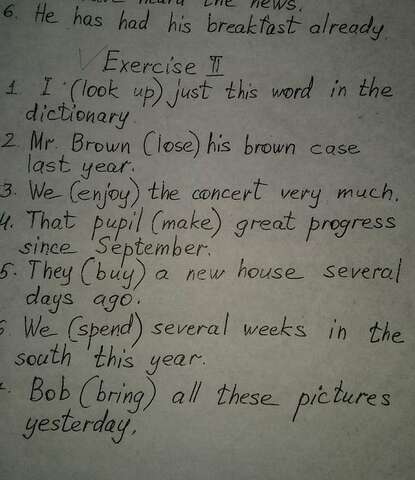 heard the news.
6. He has had his breakfast already.
Exercise II
1. I (look up) just this word in the
dictionary.
2. Mr. Brown (lose) his brown case
last year.
3. We (enjoy) the concert very much.
4. That pupil (make) great progress
since September.
5. They (buy) a new house several
days ago.
We (spend) several weeks in the
south this year.
Bob (bring) all these pictures
yesterday.